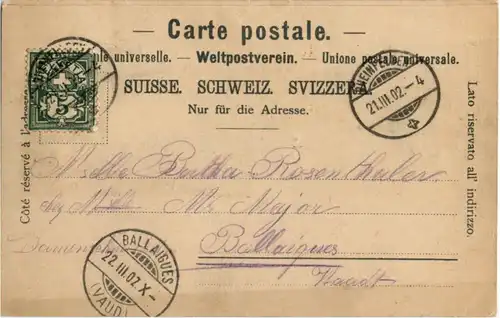 — Carte postale. —
universelle. — Weltpostverein. — Unione postale universale.
SUISSE. SCHWEIZ. SVIZZERA.
Nur für die Adresse.
Côté réservé à l'adresse
Lato riservato all' indirizzo.
RHEINFELDEN
21.III.02.–4
Mlle Bertha Rosenthaler
chez Mr Major
Ballaigues
Vaadt
BALLAIGUES
22.III.02.X–
(VAUD)